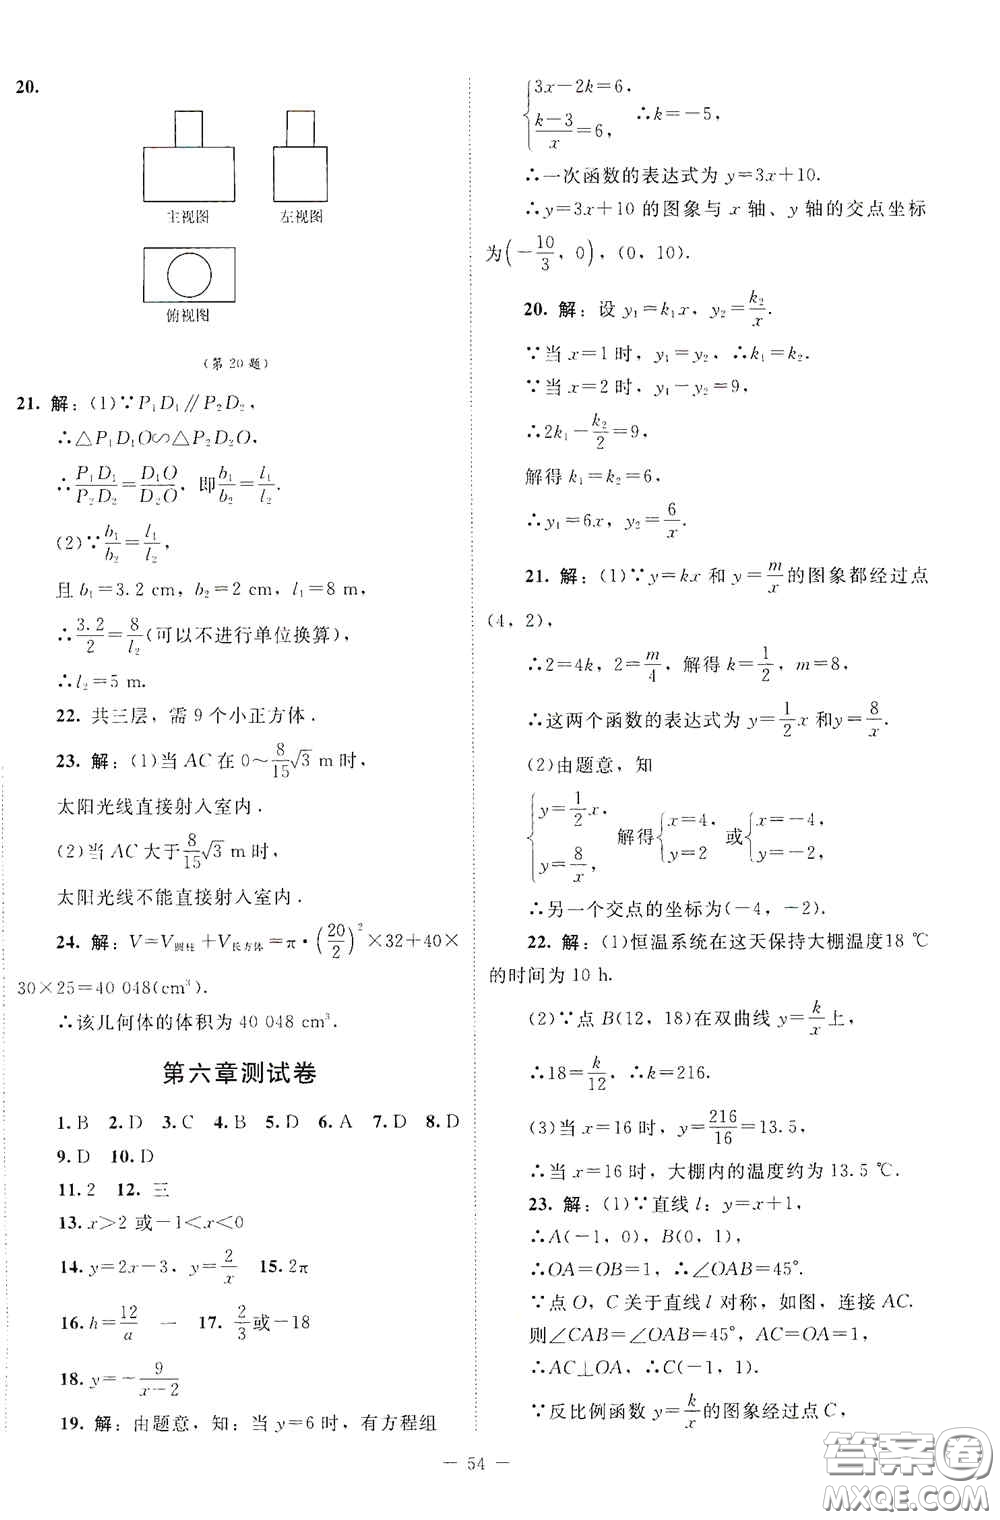 20.
主视图 左视图
俯视图
(第 20 题)
21. 解：(1)∵P₁D₁∥P₂D₂，
∴△P₁D₁O∽△P₂D₂O，
∴P₁D₁/P₂D₂=D₁O/D₂O，即b₁/b₂=l₁/l₂.
(2)∵b₁/b₂=l₁/l₂，
且 b₁=3.2 cm，b₂=2 cm，l₁=8 m，
∴3.2/2=8/l₂(可以不进行单位换算)，
∴l₂=5 m.
22. 共三层，需 9 个小正方体.
23. 解：(1)当 AC 在 0～8/15√3 m 时，
太阳光线直接射入室内.
(2)当 AC 大于 8/15√3 m 时，
太阳光线不能直接射入室内.
24. 解：V=V圆柱+V长方体=π·(20/2)²×32+40×
30×25=40 048(cm³).
∴该几何体的体积为 40 048 cm³.
第六章测试卷
1. B 2. D 3. C 4. B 5. D 6. A 7. D 8. D
9. D 10. D
11. 2 12. 三
13. x>2 或-1<x<0
14. y=2x-3，y=2/x 15. 2π
16. h=12/a 一 17. 2/3或-18
18. y=-9/(x-2)
19. 解：由题意，知：当 y=6 时，有方程组
{3x-2k=6，
(k-3)/x=6， ∴k=-5，
∴一次函数的表达式为 y=3x+10.
∴y=3x+10 的图象与 x 轴、y 轴的交点坐标
为(-10/3，0)，(0，10).
20. 解：设 y₁=k₁x，y₂=k₂/x.
∵当 x=1 时，y₁=y₂，∴k₁=k₂.
∵当 x=2 时，y₁-y₂=9，
∴2k₁-k₂/2=9，
解得 k₁=k₂=6，
∴y₁=6x，y₂=6/x.
21. 解：(1)∵y=kx 和 y=m/x的图象都经过点
(4，2)，
∴2=4k，2=m/4，解得 k=1/2，m=8，
∴这两个函数的表达式为 y=1/2x 和y=8/x.
(2)由题意，知
{y=1/2x，y=8/x，解得{x=4，y=2 或{x=-4，y=-2.
∴另一个交点的坐标为(-4，-2).
22. 解：(1)恒温系统在这天保持大棚温度18 ℃
的时间为 10 h.
(2)∵点 B(12，18)在双曲线 y=k/x上，
∴18=k/12，∴k=216.
(3)当 x=16 时，y=216/16=13.5，
∴当 x=16 时，大棚内的温度约为 13.5 ℃.
23. 解：(1)∵直线 l：y=x+1，
∴A(-1，0)，B(0，1)，
∴OA=OB=1，∴∠OAB=45°.
∵点 O，C 关于直线 l 对称，如图，连接 AC.
则∠CAB=∠OAB=45°，AC=OA=1，
∴AC⊥OA，∴C(-1，1).
∵反比例函数 y=k/x的图象经过点 C，
— 54 —
答案卷
MXQE.COM